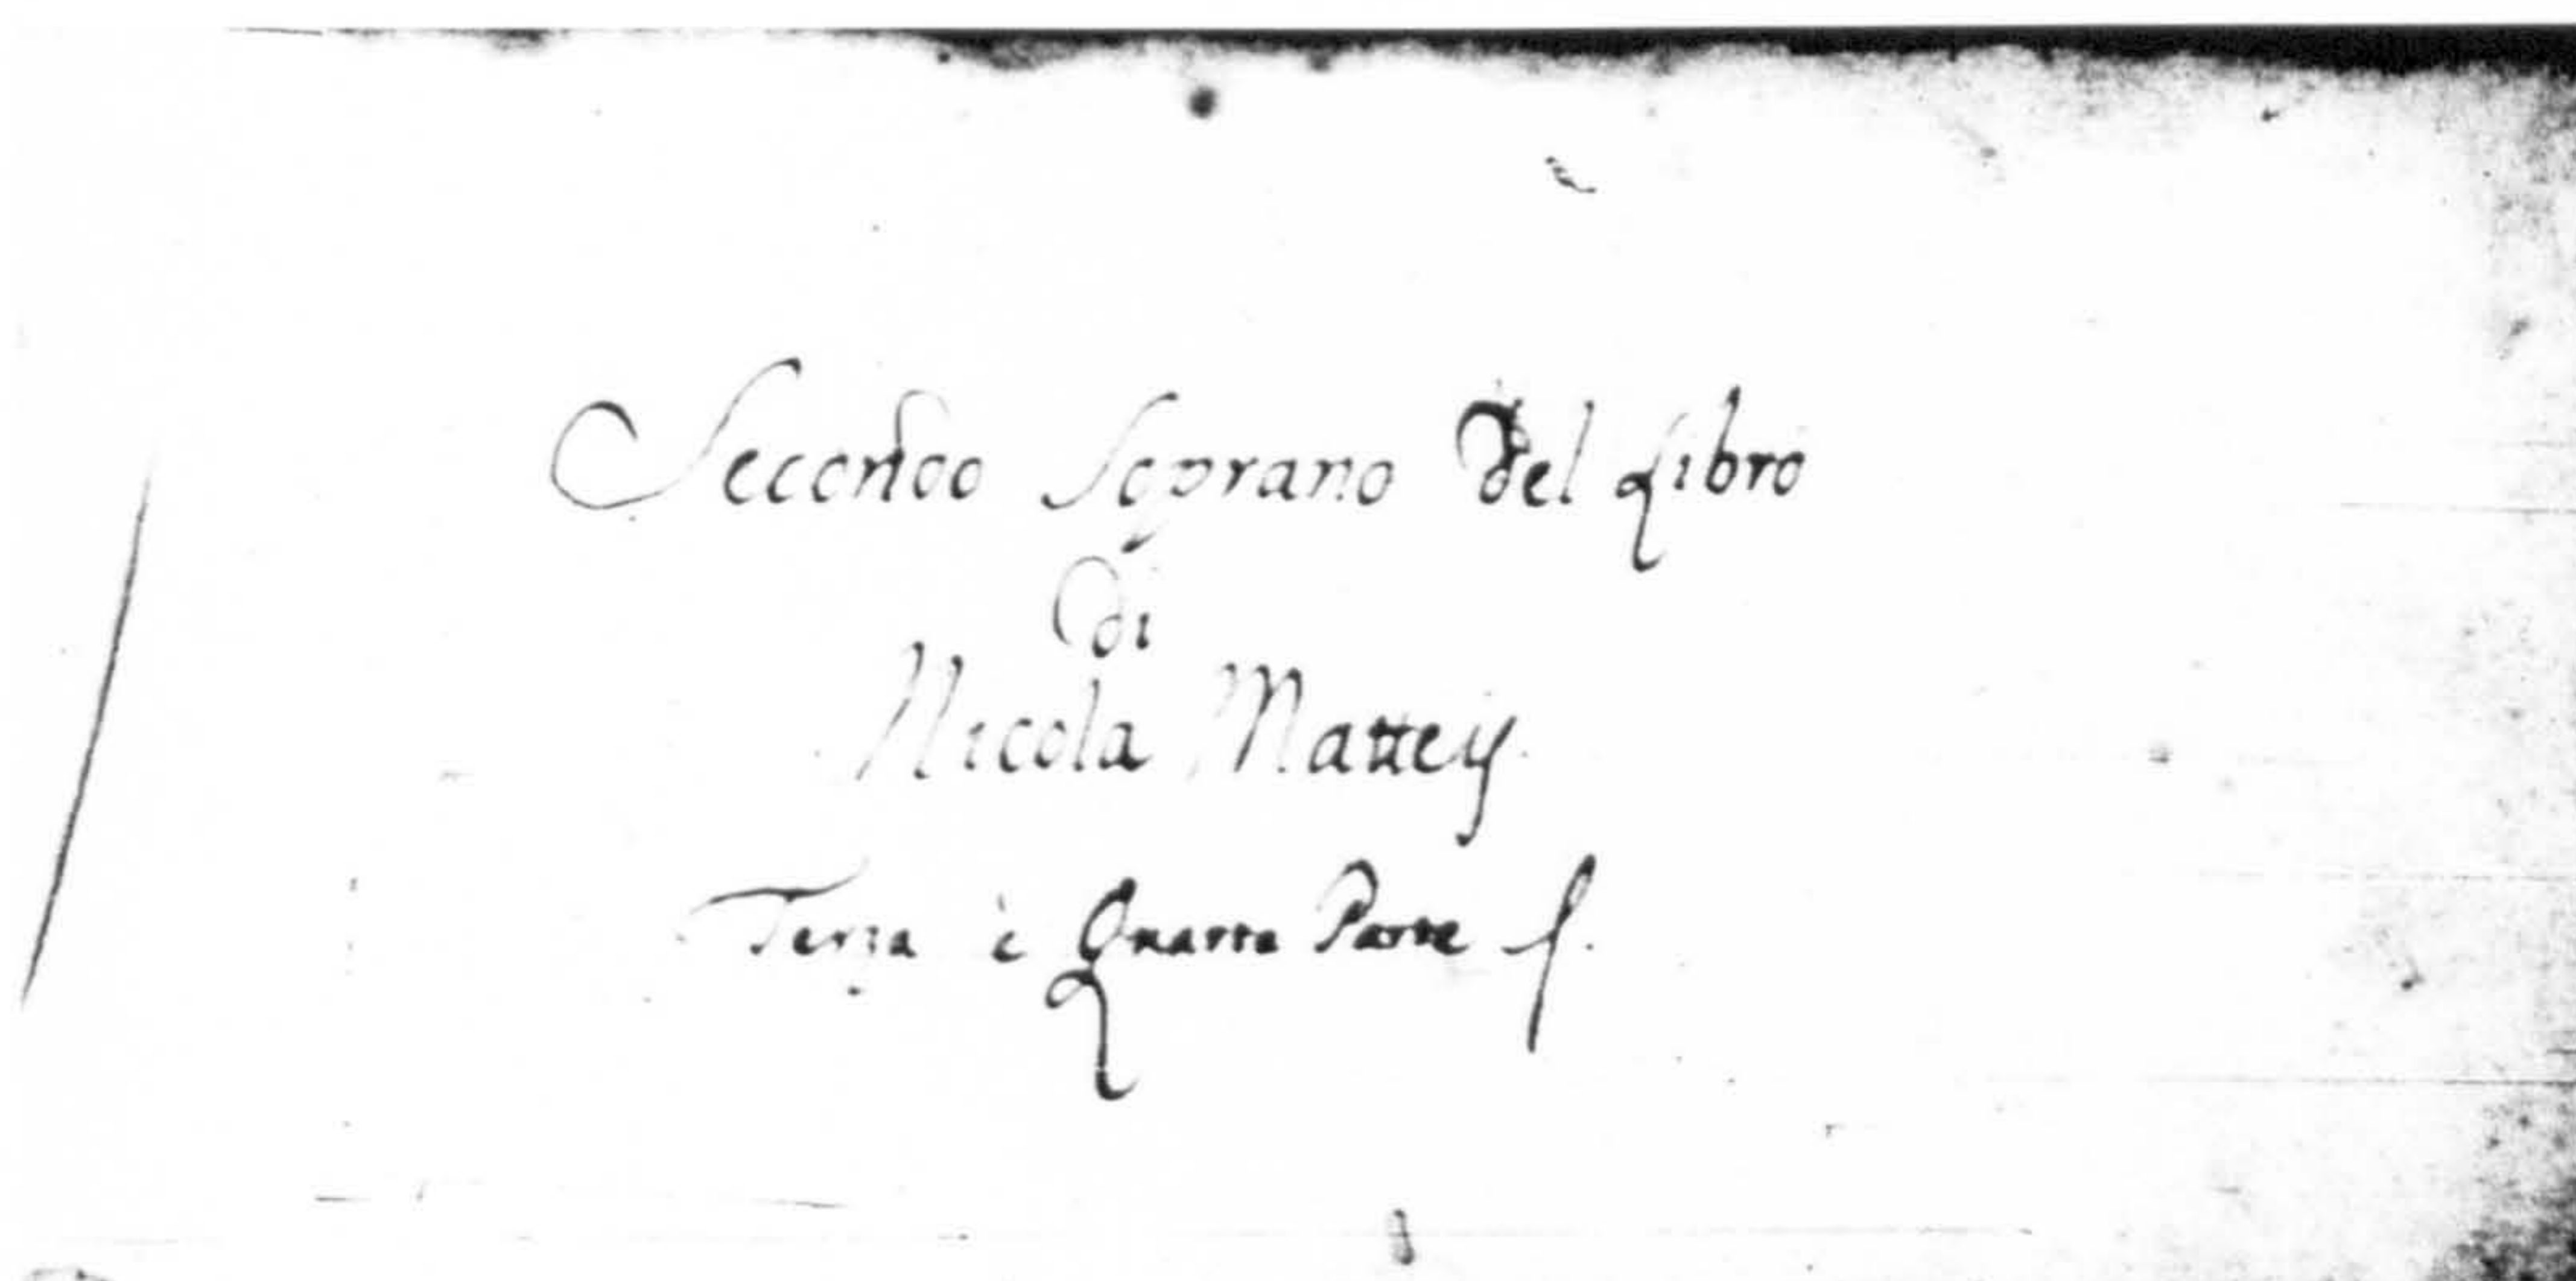 Secondo Soprano del Libro
Di
Nicola Matteij
Terza è Quarta Parte